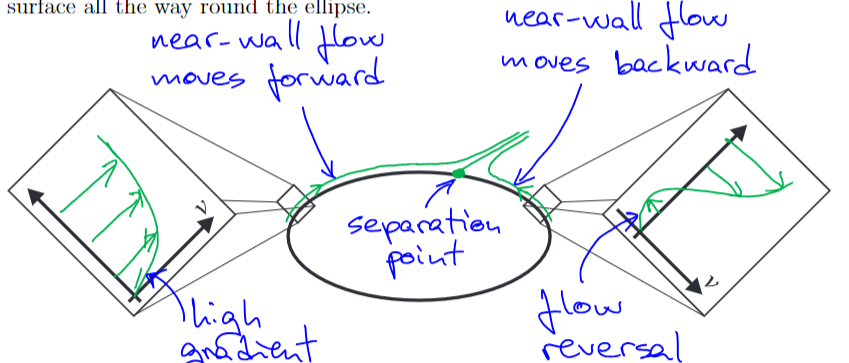 surface all the way round the ellipse.
near-wall flow
moves forward
near-wall flow
moves backward
separation
point
v
v
high
gradient
flow
reversal